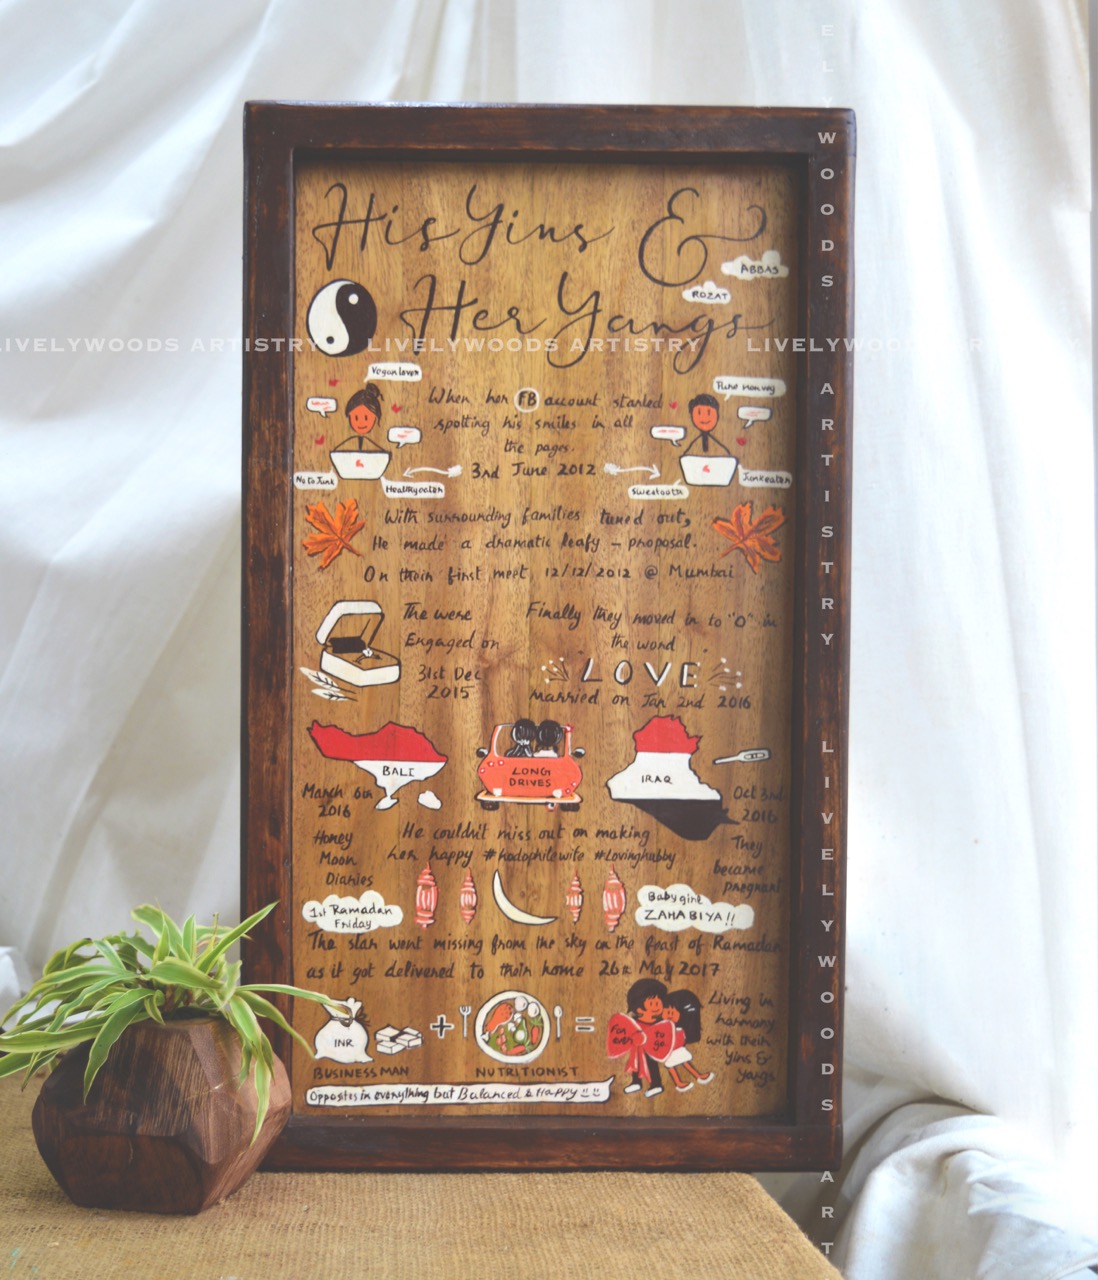 His Yins &
ABBAS
ROZAT
Her Yangs
LIVELYWOODS ARTISTRY LIVELYWOODS ARTISTRY LIVELYWOODS ARTISTRY
Vegan lover
Pure nonveg
When her FB account started
spotting his smiles in all
the pages.
3rd June 2012
No to Junk
Healthyeater
Sweetooth
Junkeater
With surrounding families tuned out,
He made a dramatic leafy - proposal.
On their first meet, 12/12/2012 @ Mumbai
The were
Engaged on
31st Dec
2015
Finally they moved in to "O" in
the word
LOVE
married on Jan 2nd 2016
BALI
LONG
DRIVES
IRAQ
March 6th
2016
Honey
Moon
Diaries
He couldn't miss out on making
her happy #hodophilewife #Lovinghubby
Oct 3rd
2016
They
became
pregnant
1st Ramadan
Friday
Babygirl
ZAHABIYA!!
The star went missing from the sky on the feast of Ramadan
as it got delivered to their home 26th May 2017
INR
+
=
BUSINESSMAN
NUTRITIONIST
For
ever
to
go
Living in
harmony
with their
Yins &
yangs
Opposites in everything but Balanced & Happy
ELYWOODS ARTISTRY LIVELYWOODS ART